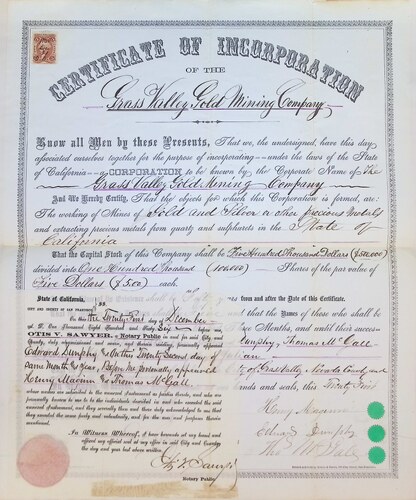 CERTIFICATE OF INCORPORATION
OF THE
Grass Valley Gold Mining Company
Know all Men by these Presents, That we, the undersigned, have this day
associated ourselves together for the purpose of incorporating under the laws of the State
of California a CORPORATION to be known by the Corporate Name of The
Grass Valley Gold Mining Company
And We Hereby Certify, That the objects for which this Corporation is formed, are:
The working of Mines of Gold and Silver & other precious metals
and extracting precious metals from quartz and sulphurets in the State of
California
That the Capital Stock of this Company shall be Five Hundred Thousand Dollars ($500,000)
divided into One Hundred Thousand (100,000) Shares of the par value of
Five Dollars ($5.00) each.
State of California, ss. from and after the date of this Certificate.
CITY AND COUNTY OF SAN FRANCISCO the Names of those who shall be
On this Twenty First day of December
A. D. One Thousand Eight Hundred and Sixty Six before me, Three Months, and until their
OTIS V. SAWYER, a Notary Public in and for said City and Dumphy, Thomas McCall
County, duly commissioned and sworn, personally appeared
Edward Dumphy & On this Twenty Second day of
same month & year, Before me personally appeared of Grass Valley, Nevada County, and
Henry Maginn & Thomas McCall hands and seals, this Twenty First
whose names are subscribed to the annexed instrument as parties thereto, and who are
personally known to me to be the individuals described in and who executed the said Henry Maginn
annexed instrument, and they severally and then duly acknowledged to me that
they executed the same freely and voluntarily, and for the uses and purposes therein Edward Dumphy
mentioned.
In Witness Whereof, I have hereunto set my hand
and affixed my official seal at my office in said City the day
and year first above written.
Notary Public.